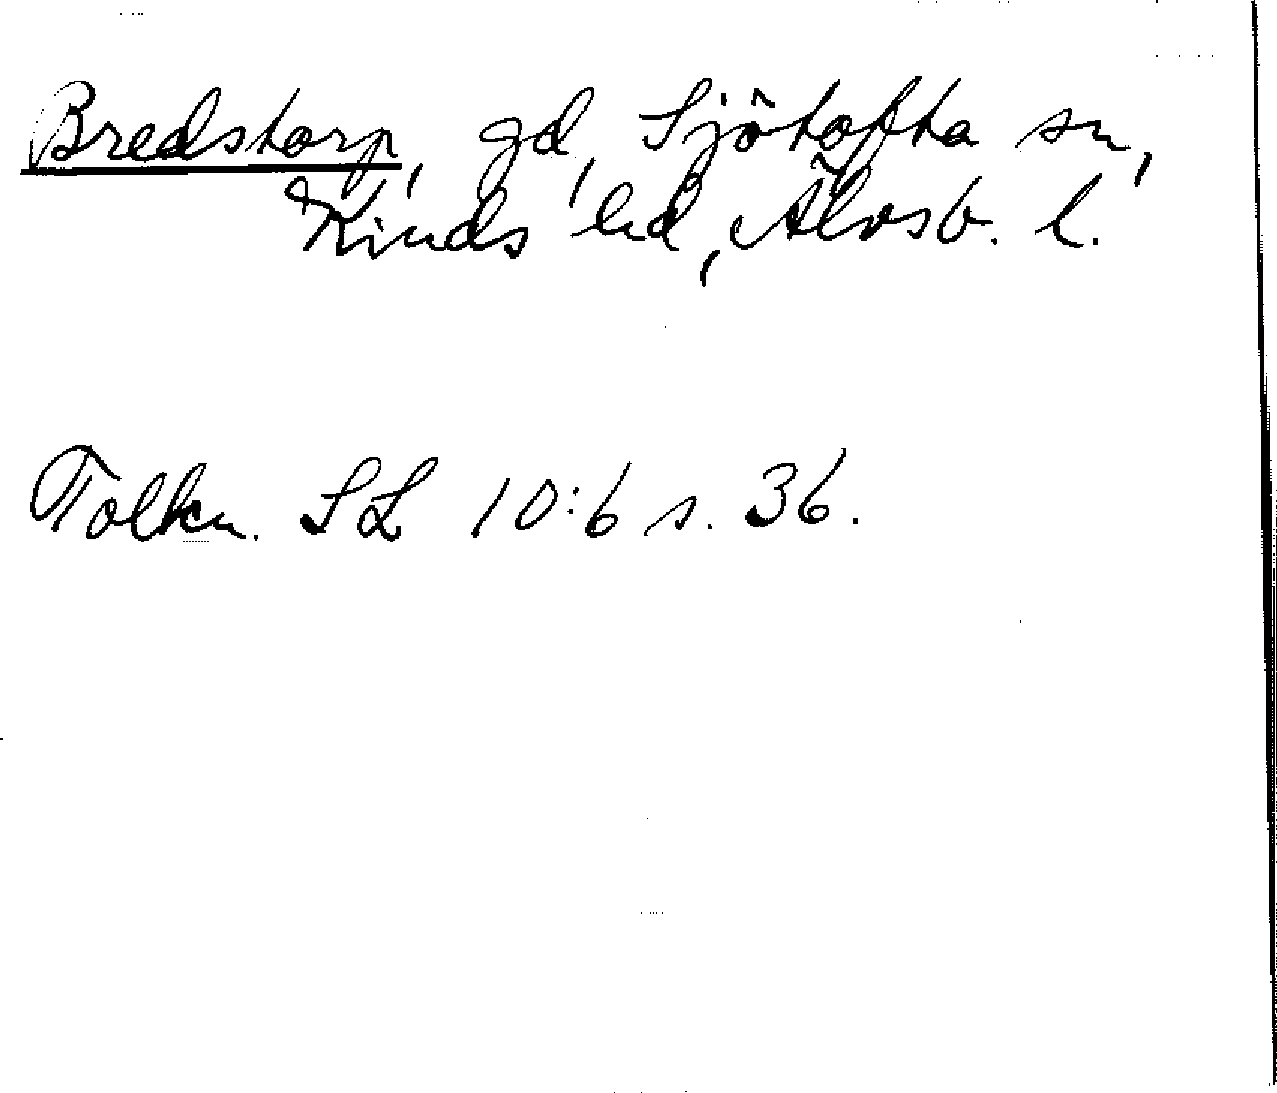 Bredstorp, gd, Sjötofta sn,
Kinds hd, Älvsb. l.
Tolkn. SL 10:6 s. 36.